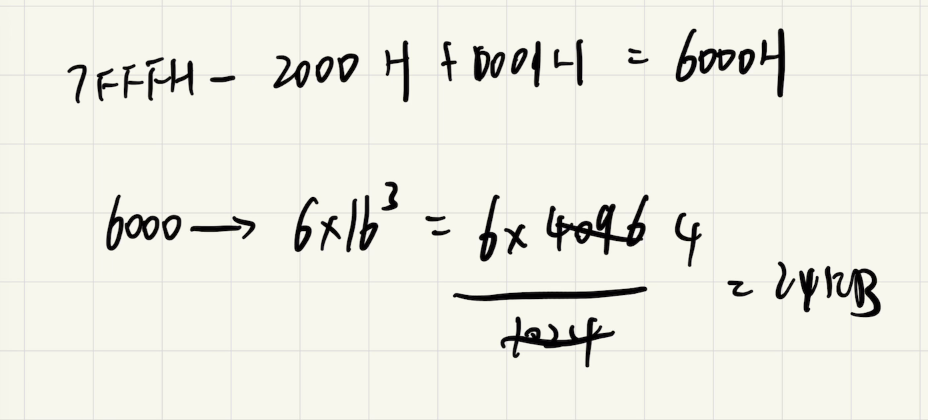 7FFFH - 2000H + 0001H = 6000H
6000 → 6×16³ = 6× 4096 4 / 1024 = 24KB